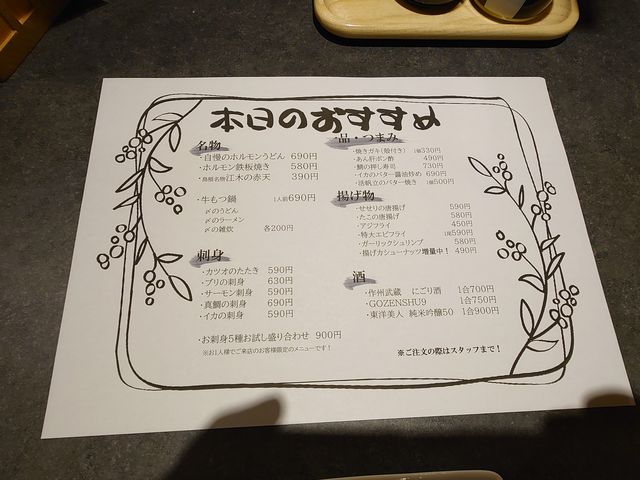 本日のおすすめ
名物
・自慢のホルモンうどん 690円
・ホルモン鉄板焼き 580円
・島根名物江木の赤天 390円
・牛もつ鍋 1人前690円
〆のうどん
〆のラーメン
〆の雑炊 各200円
刺身
・カツオのたたき 590円
・ブリの刺身 630円
・サーモン刺身 590円
・真鯛の刺身 690円
・イカの刺身 590円
・お刺身5種お試し盛り合わせ 900円
※お1人様でご来店のお客様限定のメニューです！
一品・つまみ
・焼きガキ(殻付き) 1個330円
・あん肝ポン酢 490円
・鯖の押し寿司 730円
・イカのバター醤油炒め 690円
・活帆立のバター焼き 1個500円
揚げ物
・せせりの唐揚げ 590円
・たこの唐揚げ 580円
・アジフライ 450円
・特大エビフライ 1尾590円
・ガーリックシュリンプ 580円
・揚げカシューナッツ増量中！ 490円
酒
・作州武蔵 にごり酒 1合700円
・GOZENSHU9 1合750円
・東洋美人 純米吟醸50 1合900円
※ご注文の際はスタッフまで！